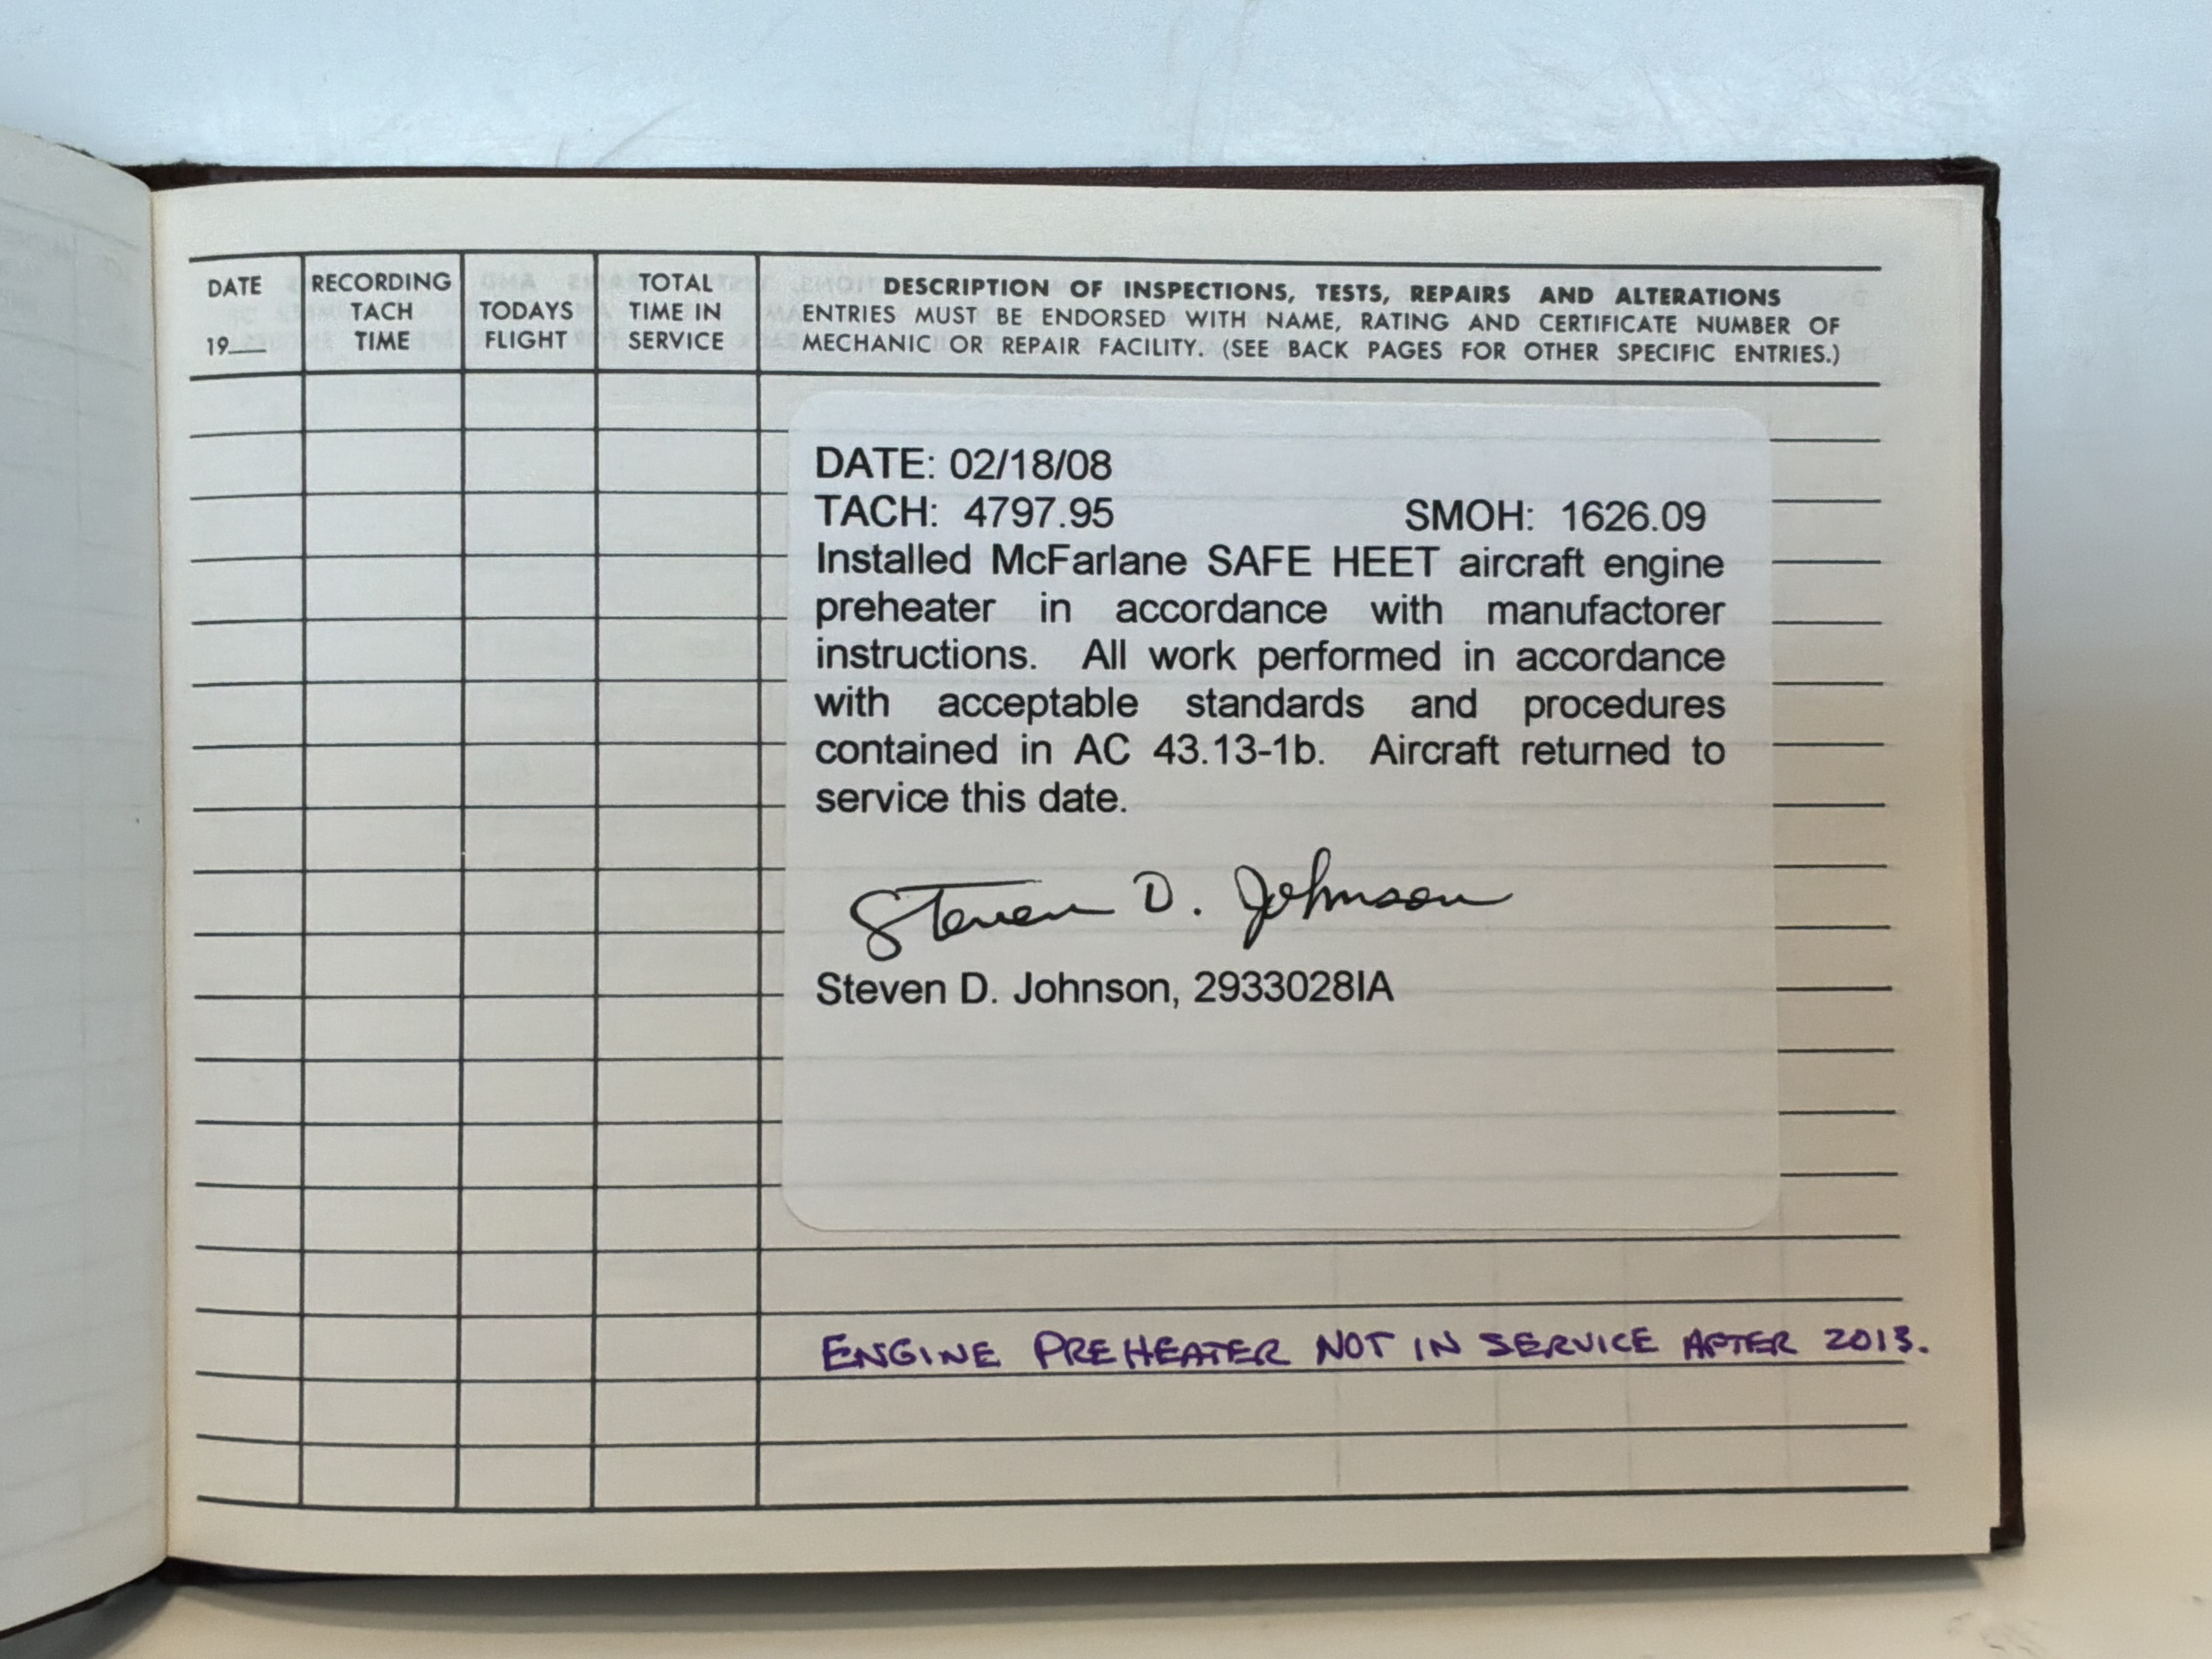 DATE
19__
RECORDING
TACH
TIME
TODAYS
FLIGHT
TOTAL
TIME IN
SERVICE
DESCRIPTION OF INSPECTIONS, TESTS, REPAIRS AND ALTERATIONS
ENTRIES MUST BE ENDORSED WITH NAME, RATING AND CERTIFICATE NUMBER OF
MECHANIC OR REPAIR FACILITY. (SEE BACK PAGES FOR OTHER SPECIFIC ENTRIES.)
DATE: 02/18/08
TACH: 4797.95 SMOH: 1626.09
Installed McFarlane SAFE HEET aircraft engine
preheater in accordance with manufactorer
instructions. All work performed in accordance
with acceptable standards and procedures
contained in AC 43.13-1b. Aircraft returned to
service this date.
Steven D. Johnson
Steven D. Johnson, 2933028IA
ENGINE PREHEATER NOT IN SERVICE AFTER 2013.